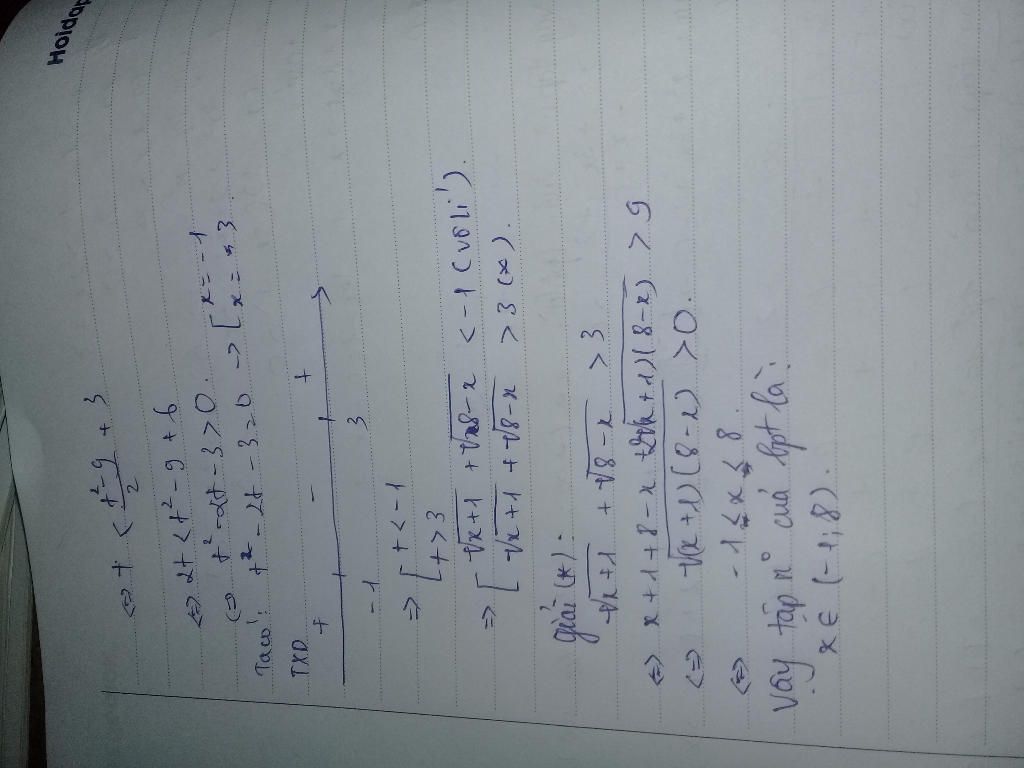 Hoidap
⇔ t < \frac{t² - 9}{2} + 3
⇔ 2t < t² - 9 + 6
⇔ t² - 2t - 3 > 0.
Ta có: t² - 2t - 3 = 0 → [ x = -1
x = 3.
TXD + - +
-1 3
⇒ [ t < -1
t > 3
⇒ [ √x+1 + √8-x < -1 (vô lí).
√x+1 + √8-x > 3 (*).
giải (*):
√x+1 + √8-x > 3
⇔ x + 1 + 8 - x + 2√(x+1)(8-x) > 9
⇔ √(x+1)(8-x) > 0.
⇔ -1 < x < 8.
Vậy tập n° của bpt là:
x ∈ (-1; 8).